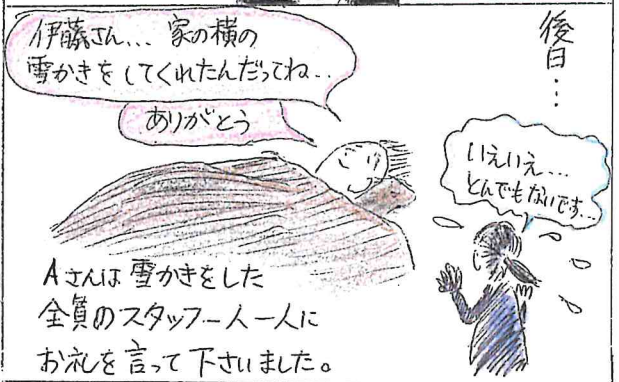 後日…
伊藤さん… 家の横の
雪かきをしてくれたんだってね…
ありがとう
いえいえ…
とんでもないです…
Aさんは雪かきをした
全員のスタッフ一人一人に
お礼を言って下さいました。